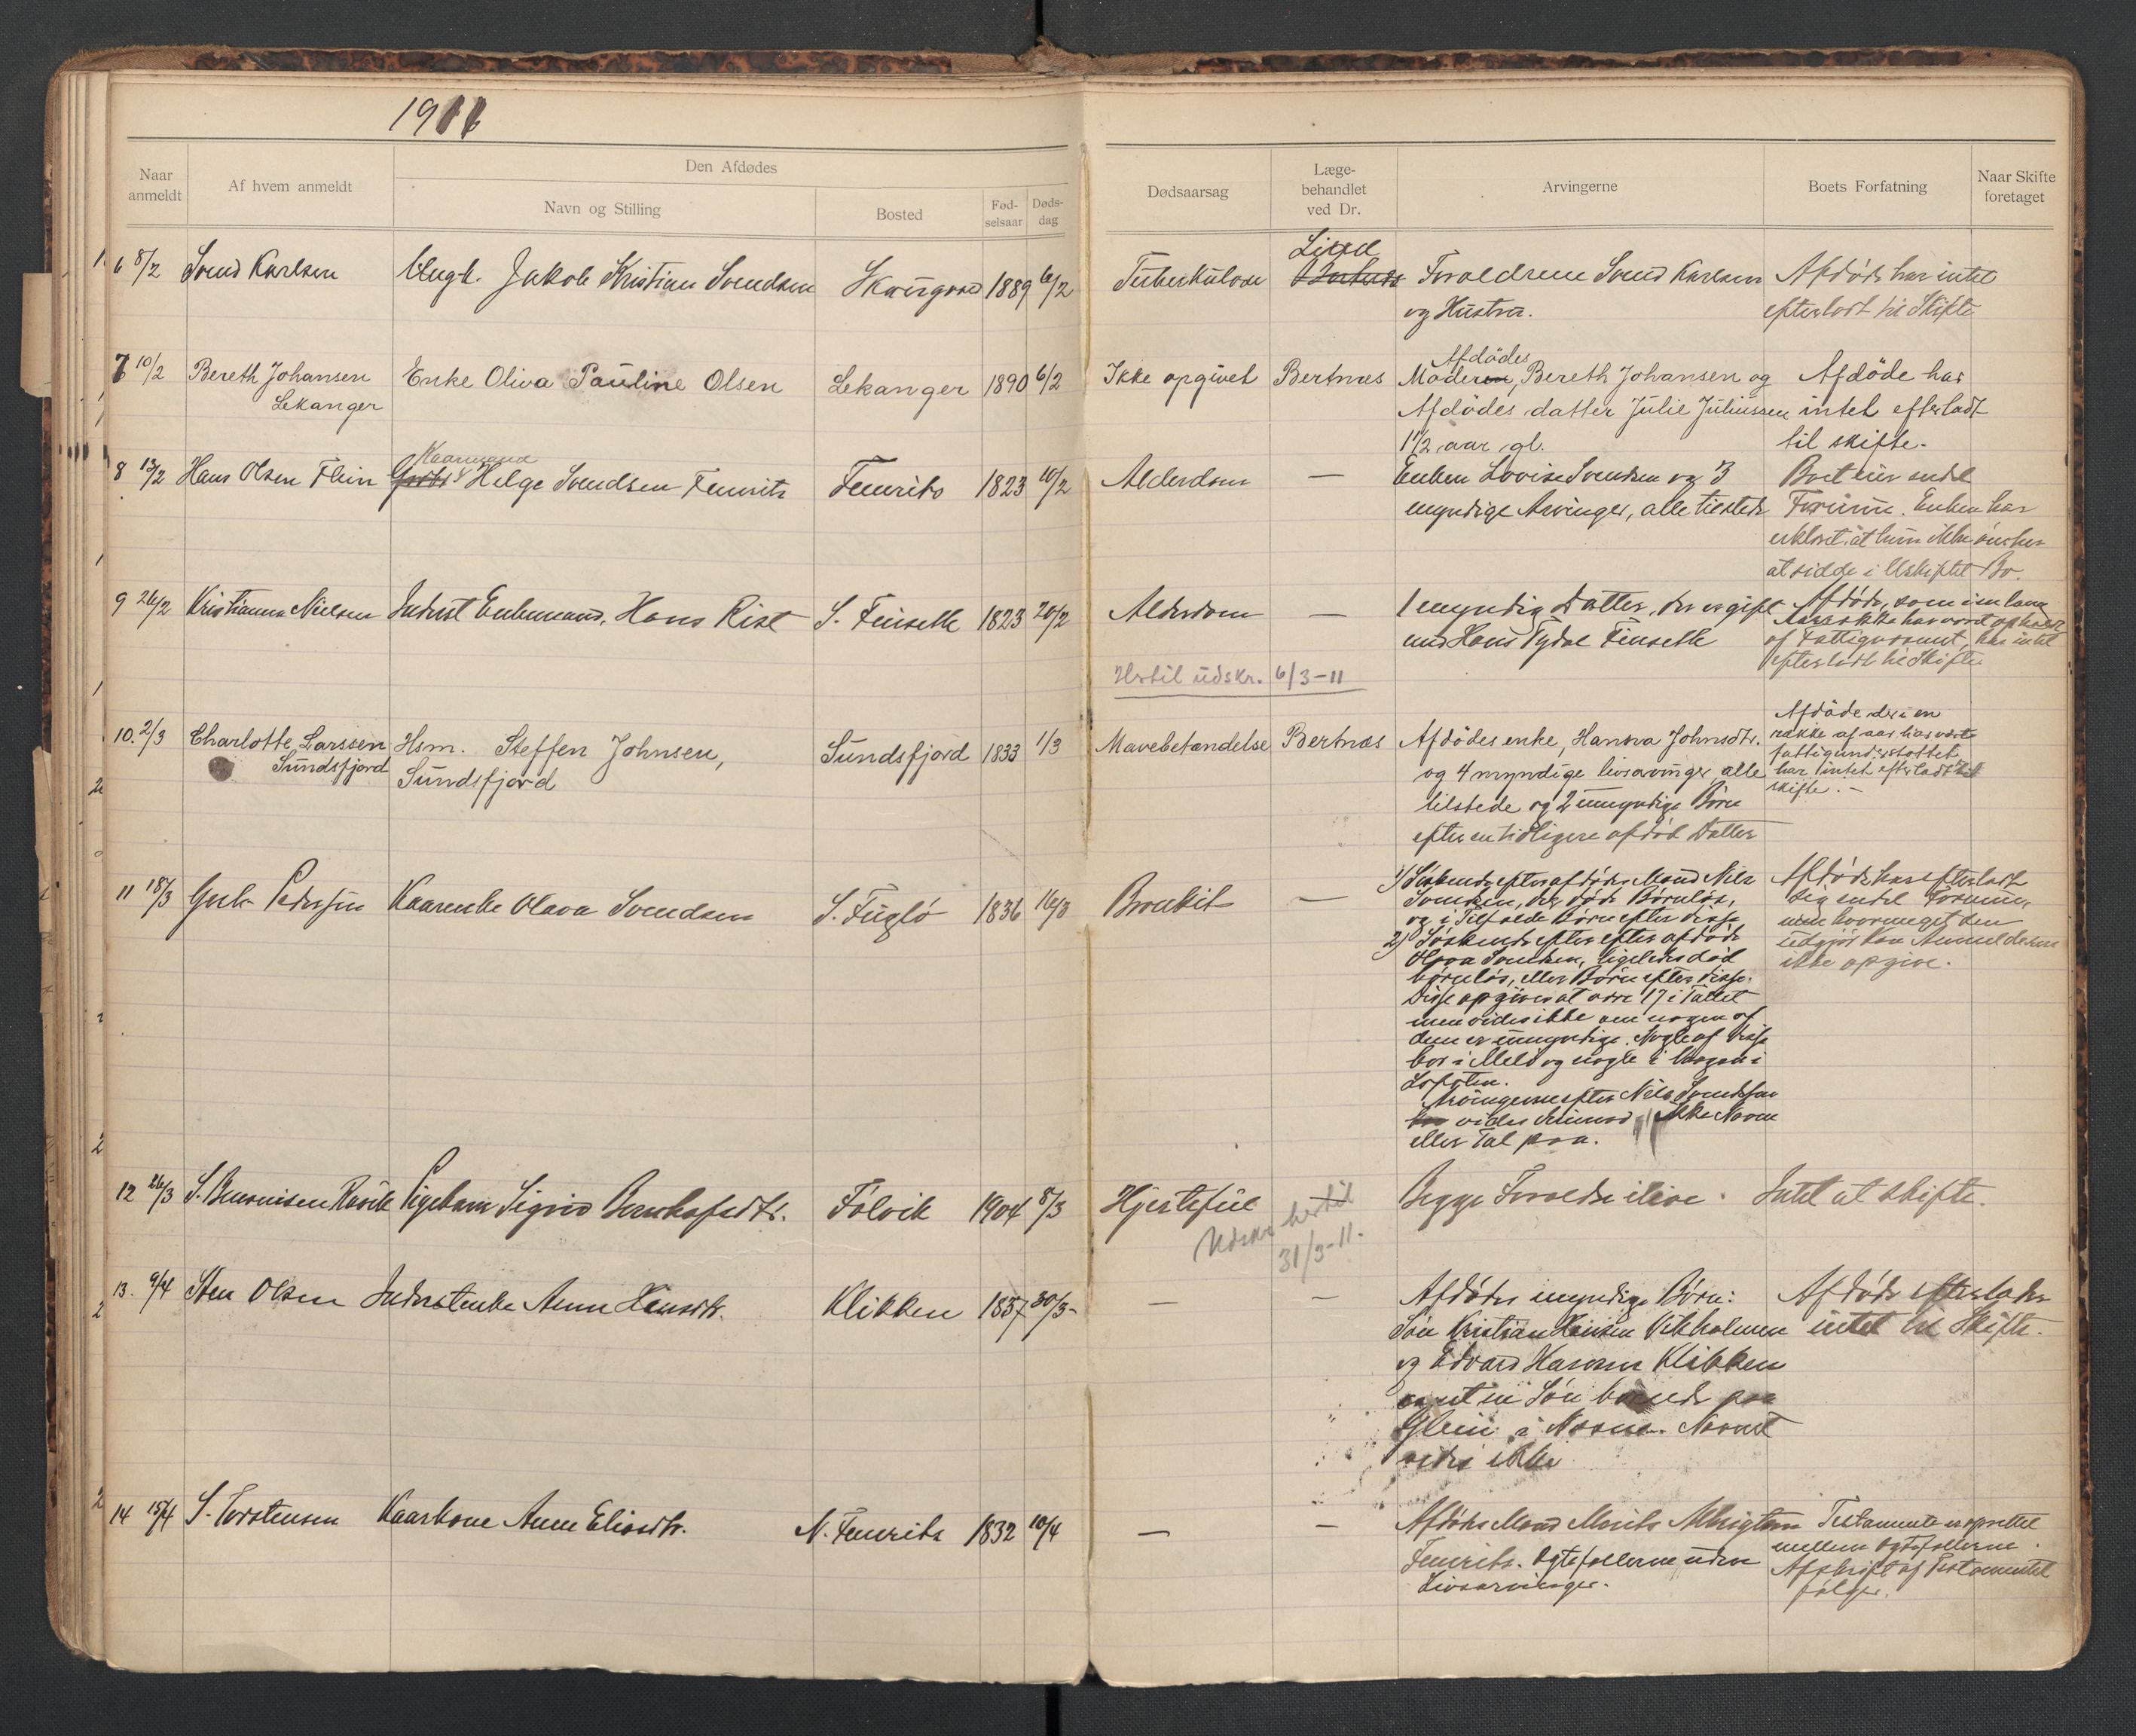 1911
Naar anmeldt
Af hvem anmeldt
Den Afdødes
Navn og Stilling
Bosted
Fød-
selsaar
Døds-
dag
Dødsaarsag
Læge-
behandlet
ved Dr.
Arvingerne
Boets Forfatning
Naar Skifte
foretaget
6 8/2 Svend Karlsen Ungk. Jakob Kristian Svendsen 1889 6/2 Tuberkulose Lind Forældrene Svend Karlsen Afdøde har intet
og Hustru. efterladt til Skifte
7 10/2 Bereth Johansen Enke Oliva Pauline Olsen Lekanger 1890 6/2 Ikke opgivet Bertnæs Afdödes Moder, Bereth Johansen og Afdöde har
Lekanger Afdödes datter Julie Juliussen intet efterladt
1 1/2 aar gl. til skifte.
8 13/2 Hans Olsen Flein Kaarmand Helge Svendsen Fenrits Fenrits 1823 10/2 Alderdom — Enken Lovise Svendsen og 3 Boet eier endel
myndige Arvinger, alle tilstede Formue. Enken har
erklæret at hun ikke ønsker
at sidde i Uskiftet Bo.
9 24/2 Kristianna Nielsen Inderst Enkemand, Hans Rist S. Finseth 1823 20/2 Alderdom — 1 myndig Datter, der er gift Afdøde, som i en lang
med Hans Tydal Finseth Aarrække har været
af Fattigvæsenet, har intet
efterladt til Skifte
Hertil udskr. 6/3-11
10. 2/3 Charlotte Larssen Hsm. Steffen Johnsen, Sundsfjord 1833 1/3 Mavebetændelse Bertnæs Afdödes enke, Hanna Johnsdtr. Afdöde der i en
Sundsfjord Sundsfjord og 4 myndige livsarvinger alle række af aar har været
tilstede og 2 umyndige Børn fattigunderstöttet
efter en tidligere afdød Datter har intet efterladt til
skifte. -
11 18/3 Pedersen Kaarenke Olava Svendsen S. Fuglø 1836 16/3 Bronkit — 1) Søskende efter afdøde Mand Nils Afdøde har efterladt
Svendsen, der døde Børnløs, sig endel Formue,
og i Tilfælde Børn efter disse men hvormeget den
2) Søskende efter efter afdøde udgjør kan Anmelderen
Olava Svendsen, ligeledes død ikke opgive.
børnløs, eller Børn efter disse.
Disse opgives at være 17 i Tallet
men vides ikke om nogen af
dem er umyndige. Nogle af disse
bor i Melø og nogle i Vaagan i
Lofoten.
Arvingerne efter Nils Svendsen
vides derimod ikke Navn
eller Tal paa.
12 26/3 S. Benonisen Pigebarn Sigrid Følvik 1904 8/3 Hjertefeil Begge Forældre ilive. Intet at skifte.
Udskr hertil
31/3-11.
13. 9/4 Sten Olsen Inderstenke Anne Hansdtr. Klikken 1837 30/3 — — Afdødes myndige Børn: Afdøde efterlader
Søn Kristian Hansen Vikholmen intet til Skifte.
og Edvard Hansen Klikken
samt en Søn boende paa
i Næsne. Navnet
vides ikke
14 15/4 S. Torstensen Kaarkone Anne Eliasdtr. N. Fenrits 1832 10/4 — — Afdødes Mand Morits Testamente er oprettet
Fenrits. Ægtefællerne uden mellem Ægtefællerne.
Livsarvinger. Afskrift af Testamentet
følger.